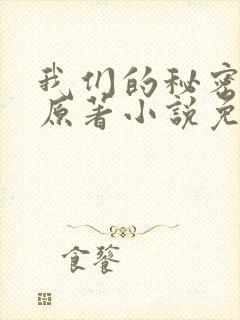 我们的秘密
原著小说免
食饕